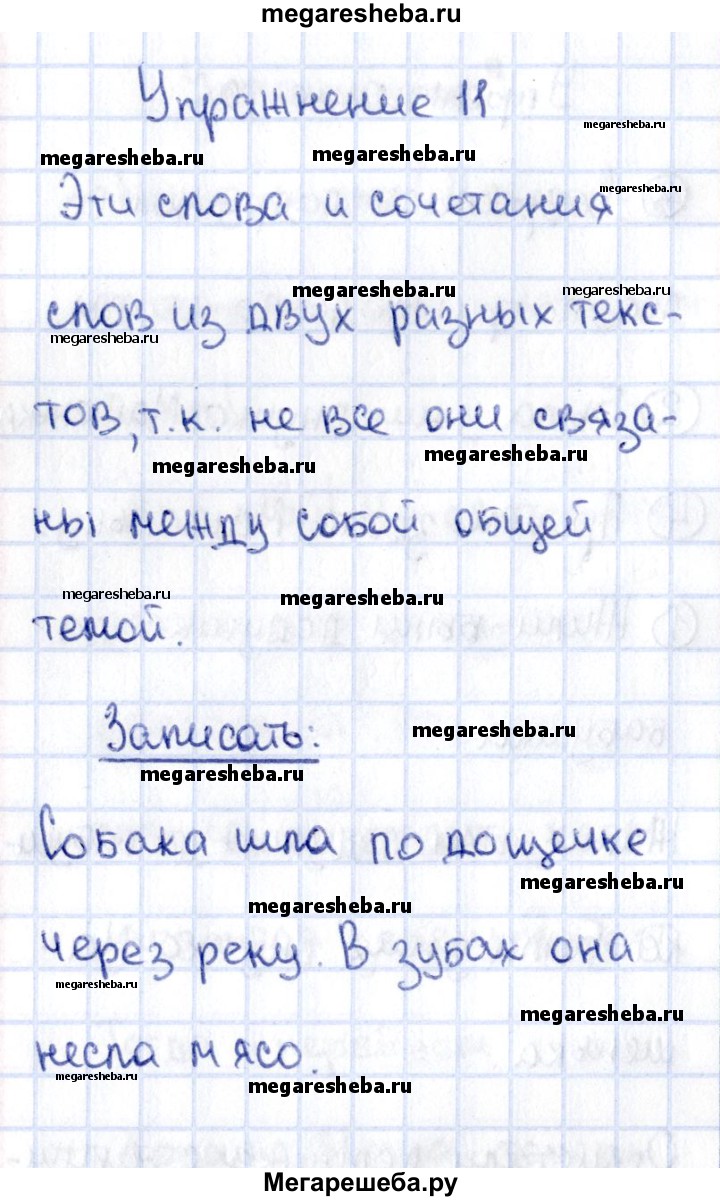 megaresheba.ru
Упражнение 11
megaresheba.ru
megaresheba.ru
megaresheba.ru
Эти слова и сочетания
megaresheba.ru
megaresheba.ru
megaresheba.ru
слов из двух разных текс-
megaresheba.ru
тов, т.к. не все они связа-
megaresheba.ru
megaresheba.ru
ны между собой общей
megaresheba.ru
megaresheba.ru
темой.
Записать:
megaresheba.ru
megaresheba.ru
Собака шла по дощечке
megaresheba.ru
megaresheba.ru
через реку. В зубах она
megaresheba.ru
megaresheba.ru
несла мясо.
megaresheba.ru
megaresheba.ru
Мегарешеба.ру